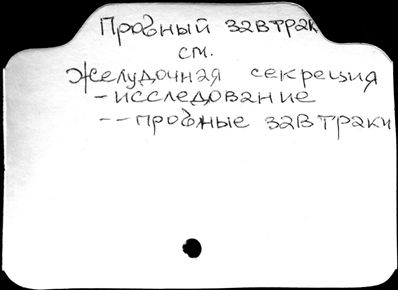 Пробный завтрак
см.
Желудочная секреция
-исследование
--пробные завтраки